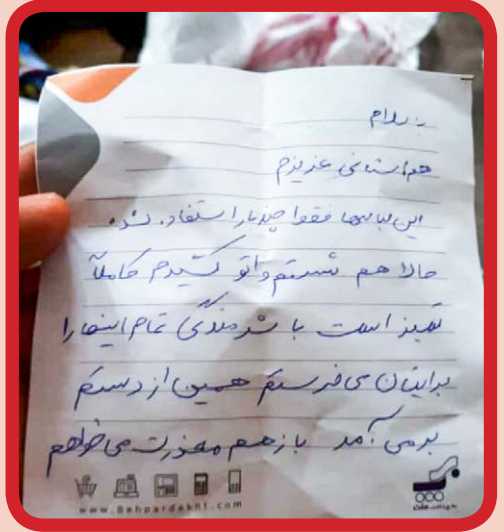 سلام
هم‌استانی عزیزم
این لباسها فقط چند بار استفاده شده
حالا هم شستم و اتو کشیدم کاملاً
تمیز است با شرمندگی تمام اینها را
برایتان می‌فرستم همین از دستم
برمی‌آمد باز هم معذرت می‌خواهم
www.Behpardakht.com
به پرداخت ملت